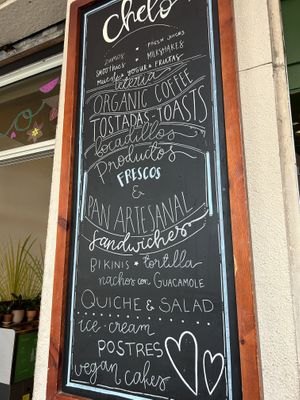 Chelo
ZUMOS • FRESH JUICES
SMOOTHIES • MILKSHAKES
MUESLI, YOGUR & FRUTAS
tetería
ORGANIC COFFEE
TOSTADAS-TOASTS
bocadillos
Productos
FRESCOS
&
PAN ARTESANAL
sandwiches
BIKINIS * tortilla
nachos con GUACAMOLE
QUICHE & SALAD
ice-cream
POSTRES
vegan cakes